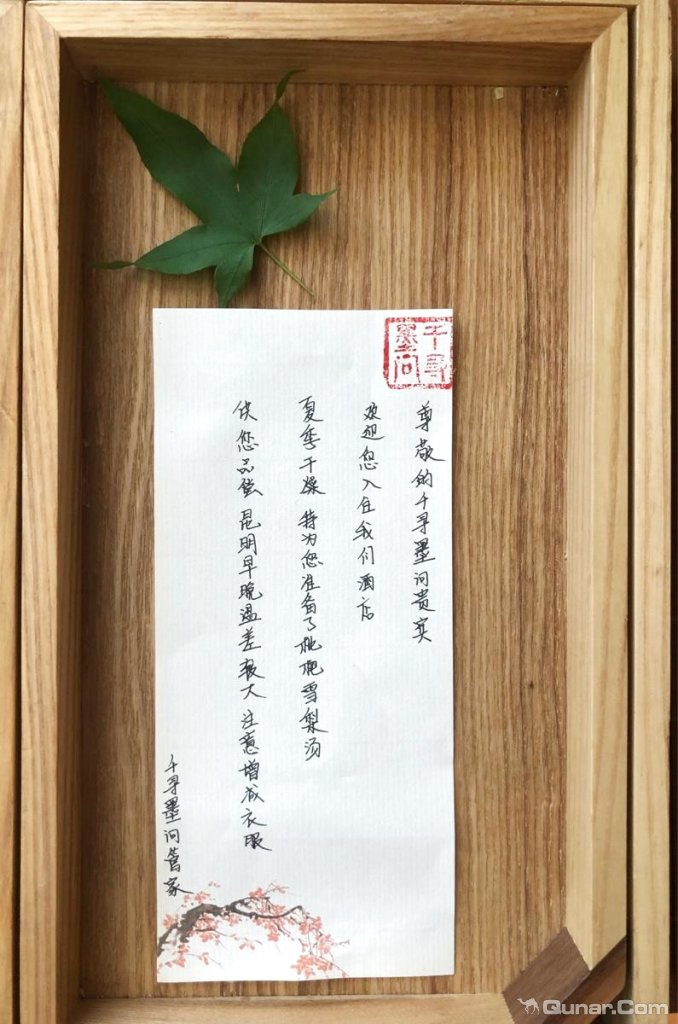 千寻
墨问
尊敬的千寻墨问贵宾
欢迎您入住我们酒店
夏季干燥 特为您准备了枇杷雪梨汤
供您品尝 昆明早晚温差较大 注意增减衣服
千寻墨问管家
Qunar.Com